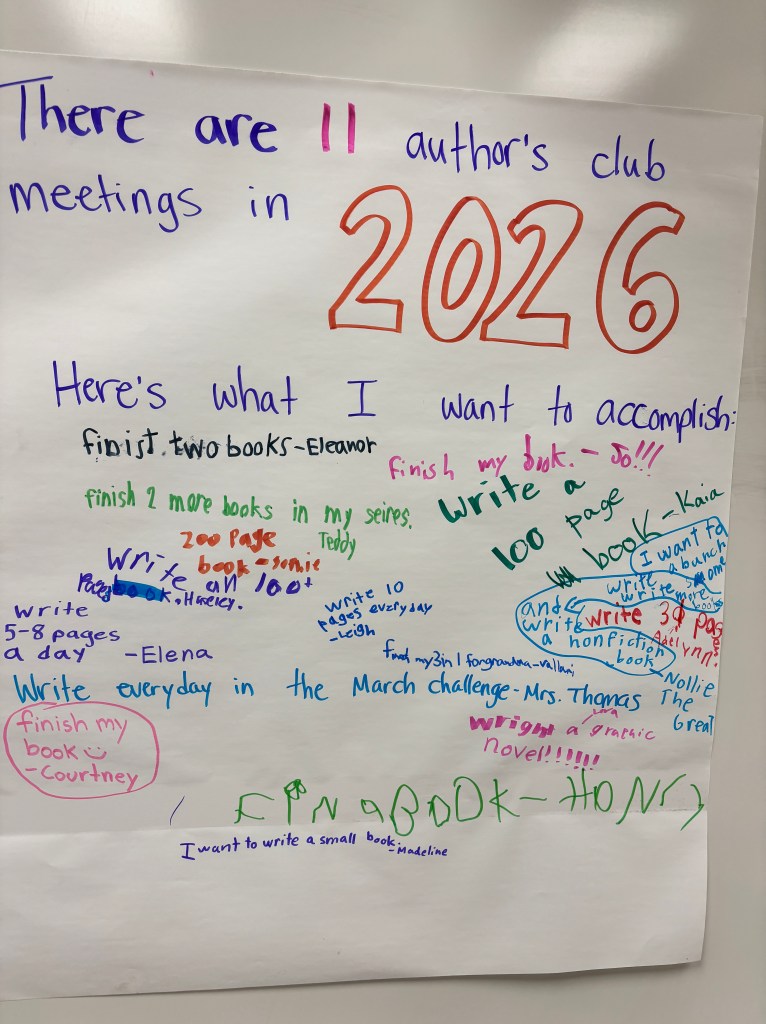 There are 11 author's club
meetings in 2026
Here's what I want to accomplish:
finist two books-Eleanor
finish my book. - Jo!!!
finish 2 more books in my seires.
Teddy
write a
100 page
book-Kaia
200 Page
book-
write an 100+
Page book.
write 10
pages everyday
-Leigh
I want to
a bunch
more
books
write
and
write
a nonfiction
book
-Nollie
The
Great
write 30 pages
Adelynn.
write
5-8 pages
a day -Elena
my 3in1 for
Write everyday in the March challenge-Mrs. Thomas
finish my
book
-Courtney
wright a graphic
novel!!!!!!
Fin a BOOK-HONr
I want to write a small book-Madeline